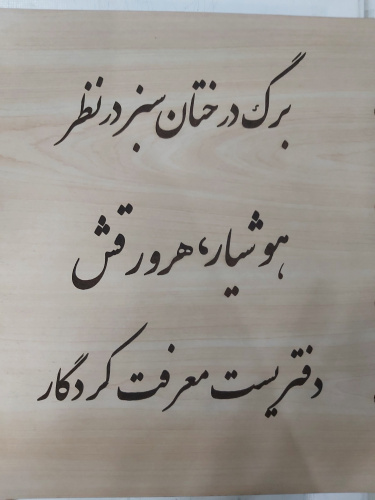 برگ درختان سبز در نظر
هوشیار، هر ورقش
دفتریست معرفت کردگار